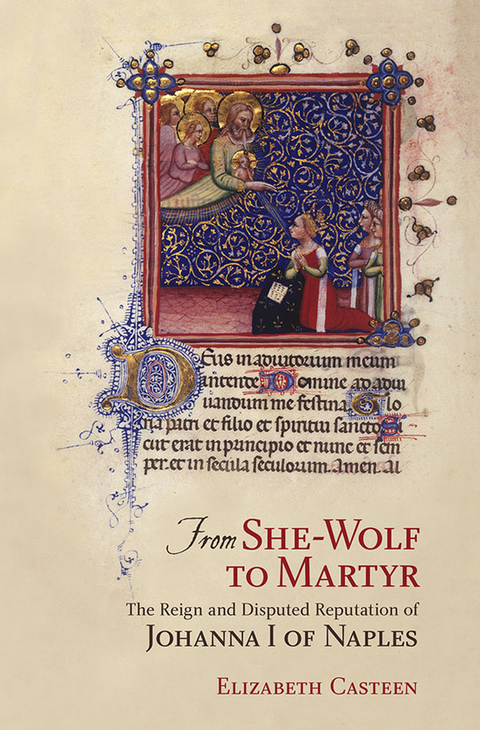 Deus in adiutorium meum
intende Domine ad adiu
uandum me festina Glo
ria patri et filio et spiritui sancto S
icut erat in principio et nunc et sem
per. et in secula seculorum. Amen. Al
From SHE-WOLF
TO MARTYR
The Reign and Disputed Reputation of
JOHANNA I OF NAPLES
ELIZABETH CASTEEN